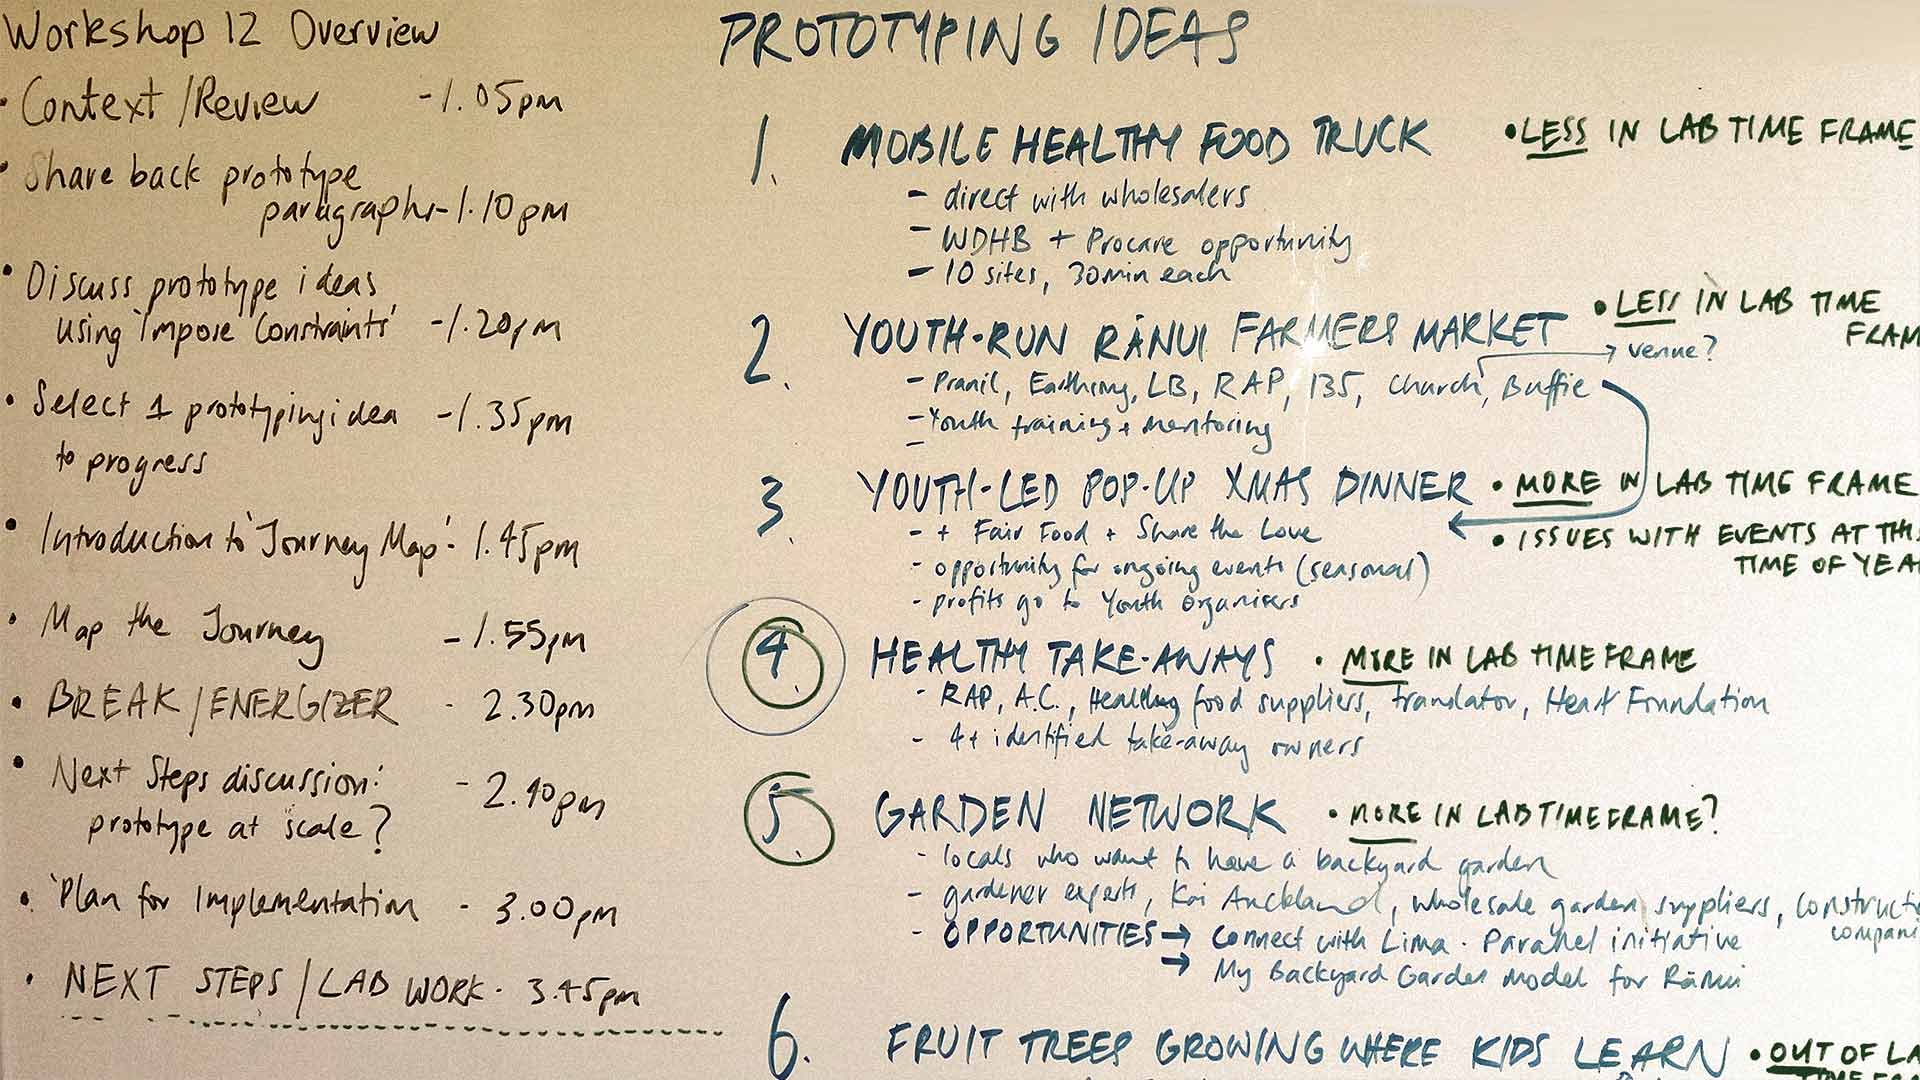 Workshop 12 Overview
• Context / Review - 1.05pm
• Share back prototype
paragraphs - 1.10pm
• Discuss prototype ideas
using 'Impose Constraints' - 1.20pm
• Select 1 prototyping idea - 1.35pm
to progress
• Introduction to 'Journey Map' - 1.45pm
• Map the Journey - 1.55pm
• BREAK / ENERGIZER - 2.30pm
• Next Steps discussion: - 2.40pm
prototype at scale?
• Plan for Implementation - 3.00pm
• NEXT STEPS / LAB WORK - 3.45pm
PROTOTYPING IDEAS
1. MOBILE HEALTHY FOOD TRUCK • LESS IN LAB TIME FRAME
- direct with wholesalers
- WDHB + Procare opportunity
- 10 sites, 30min each
2. YOUTH-RUN RĀNUI FARMERS MARKET • LESS IN LAB TIME
FRAM
→ venue?
- Pranil, Earthsong, LB, RAP, 135, Church, Buffie
- Youth training + mentoring
-
3. YOUTH-LED POP-UP XMAS DINNER • MORE IN LAB TIME FRAME
- + Fair Food + Share the Love • ISSUES WITH EVENTS AT THIS
TIME OF YEA
- opportunity for ongoing events (seasonal)
- profits go to Youth Organisers
4. HEALTHY TAKE-AWAYS • MORE IN LAB TIME FRAME
- RAP, A.C., Healthy food suppliers, translator, Heart Foundation
- 4+ identified take-away owners
5. GARDEN NETWORK • MORE IN LAB TIME FRAME?
- locals who want to have a backyard garden
- gardener experts, Kai Auckland, wholesale garden suppliers, constructi
compani
- OPPORTUNITIES → Connect with Lima. Parallel initiative
→ My Backyard Garden model for Rānui
6. FRUIT TREES GROWING WHERE KIDS LEARN • OUT OF LA